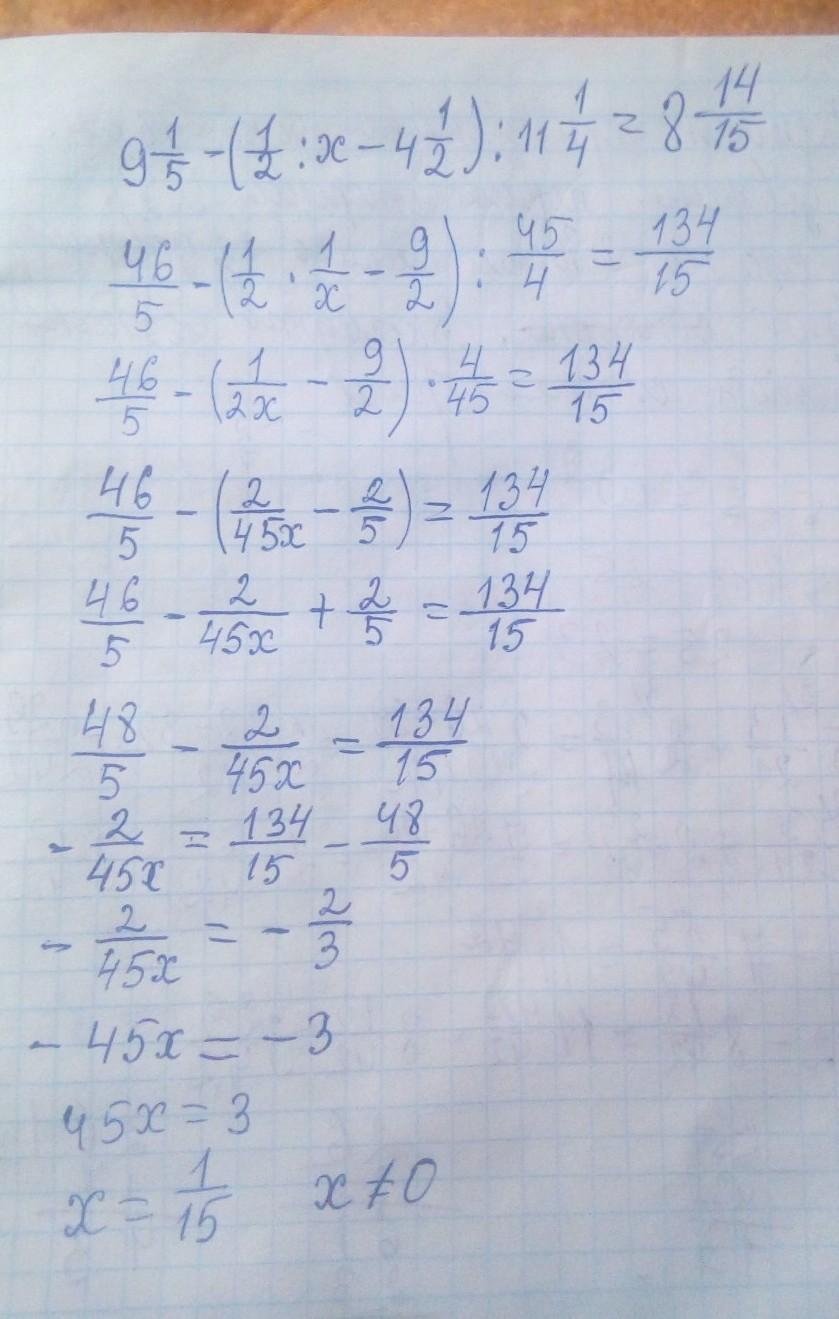 9 1/5 - (1/2 : x - 4 1/2) : 11 1/4 = 8 14/15
46/5 - (1/2 · 1/x - 9/2) : 45/4 = 134/15
46/5 - (1/2x - 9/2) · 4/45 = 134/15
46/5 - (2/45x - 2/5) = 134/15
46/5 - 2/45x + 2/5 = 134/15
48/5 - 2/45x = 134/15
- 2/45x = 134/15 - 48/5
- 2/45x = - 2/3
- 45x = - 3
45x = 3
x = 1/15 x ≠ 0